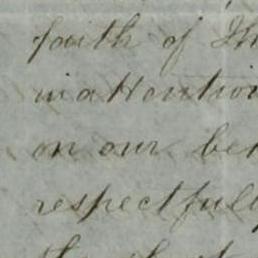 faith of
inattention
on our
respectfully